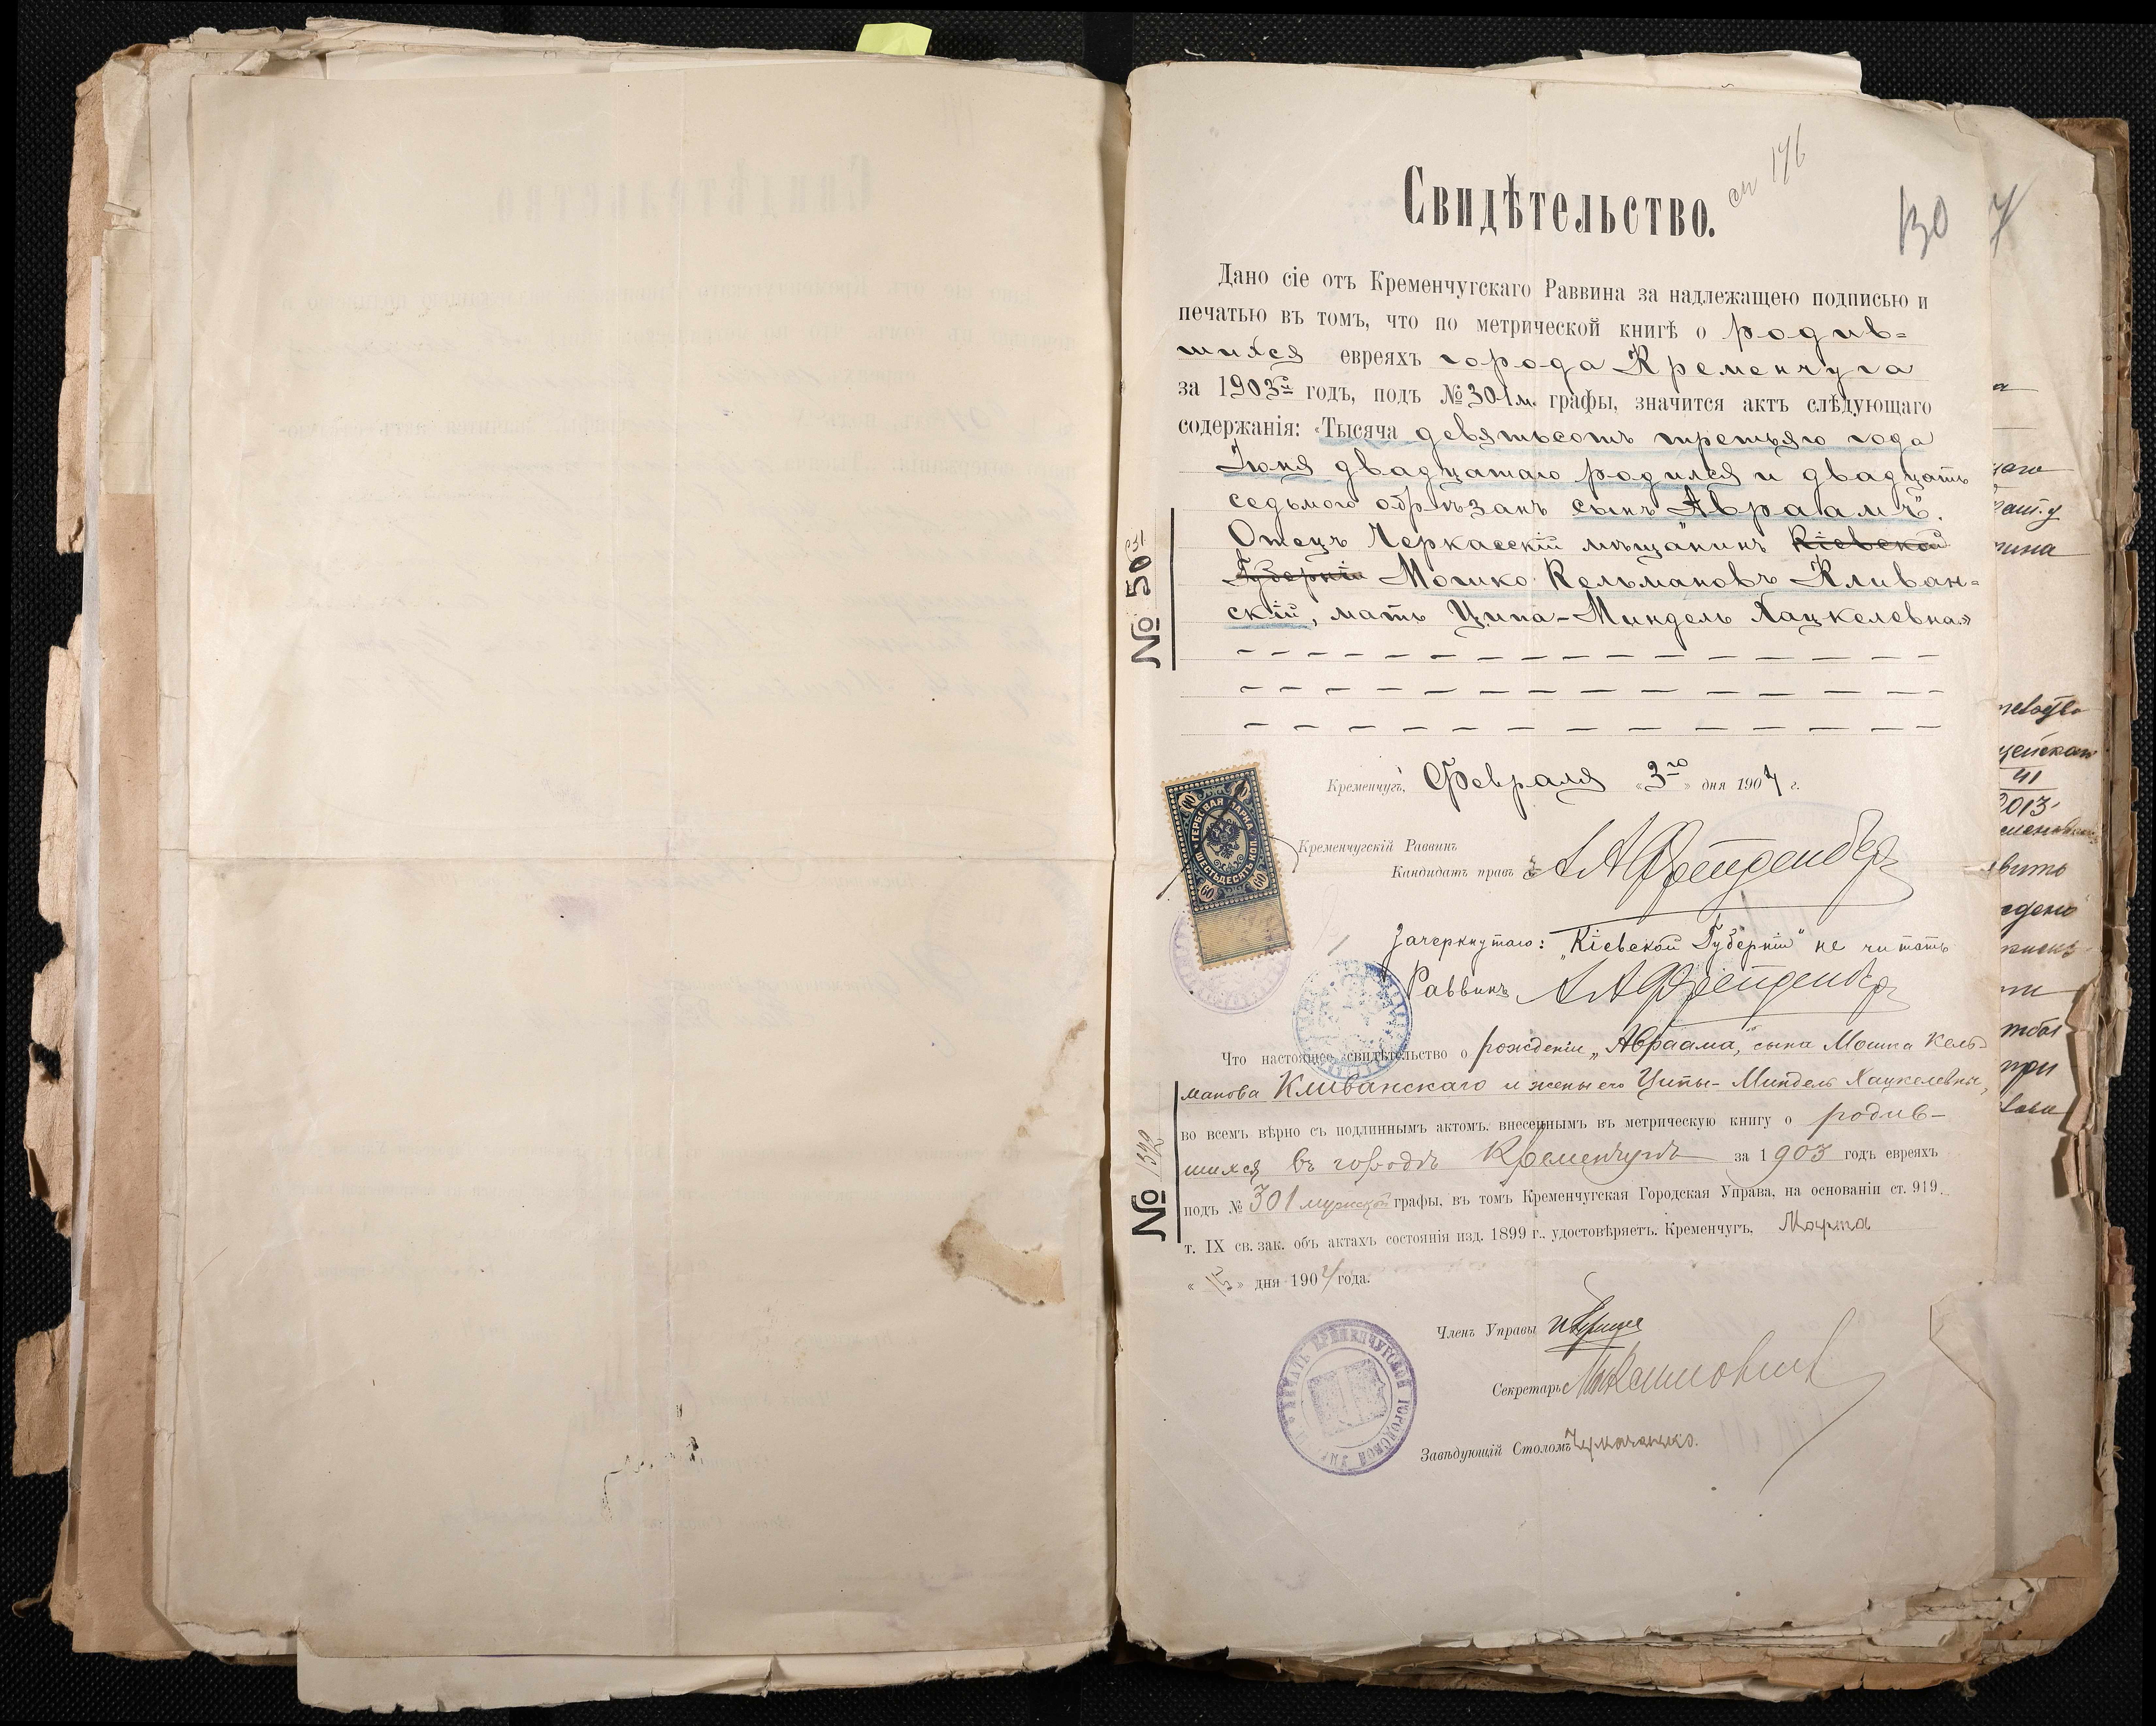 см 176
Свидѣтельство.
130
7
Дано сіе отъ Кременчугскаго Раввина за надлежащею подписью и
печатью въ томъ, что по метрической книгѣ о родив=
шихся евреяхъ города Кременчуга
за 1903й годъ, подъ № 301 м. графы, значится актъ слѣдующаго
содержанія: «Тысяча девятьсотъ третьяго года
Іюня двадцатаго родился и двадцать
седьмого обрѣзанъ сынъ „Авраамъ".
Отецъ Черкасскій мѣщанинъ Кіевской
Губерніи Мошко Кельмановъ Кливан=
скій, мать Ципа-Миндель Хацкелевна.»
№ 505
Кременчугъ, Февраля «3го» дня 1904 г.
ГЕРБОВАЯ МАРКА
ШЕСТЬДЕСЯТЪ КОП.
60 60
Кременчугскій Раввинъ
Кандидатъ правъ А А Фрейденбергъ
Зачеркнутаго: „Кіевской Губерніи" не читать
Раввинъ А А Фрейденбергъ
Что настоящее свидѣтельство о рожденіи „Авраама", сына Мошка Кель=
манова Кливанскаго и жены его Ципы-Миндель Хацкелевны,
во всемъ вѣрно съ подлиннымъ актомъ, внесеннымъ въ метрическую книгу о родив-
шихся въ городѣ Кременчугѣ за 1903 годъ евреяхъ
подъ № 301 мужской графы, въ томъ Кременчугская Городская Управа, на основаніи ст. 919.
т. IX св. зак. объ актахъ состоянія изд. 1899 г., удостовѣряетъ. Кременчугъ, Марта
№ 1522
« » дня 1904 года.
Членъ Управы
Секретарь
Завѣдующій Столомъ
ПЕЧАТЬ КРЕМЕНЧУГСКОЙ ГОРОДСКОЙ